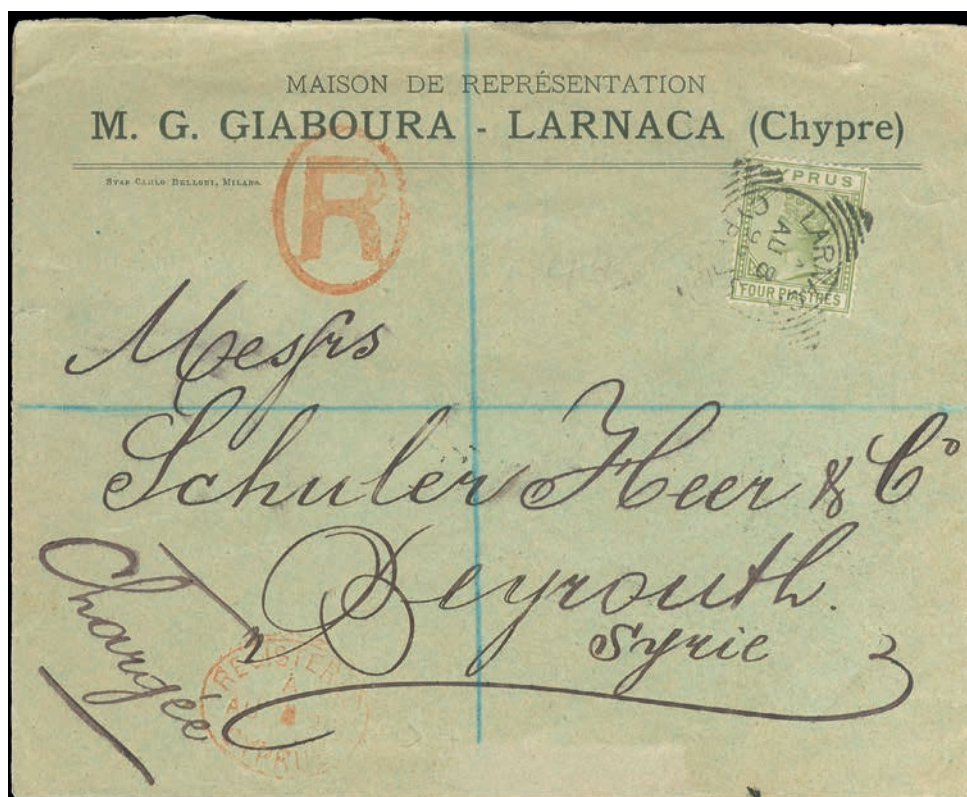 MAISON DE REPRÉSENTATION
M. G. GIABOURA - LARNACA (Chypre)
STAB CARLO BELLONI, MILANO.
R
CYPRUS
LARNA
AU
FOUR PIASTRES
Messrs
Schuler Heer & Co
Beyrouth.
Syrie
Chargée
REGISTER
A
AU
CYPRU